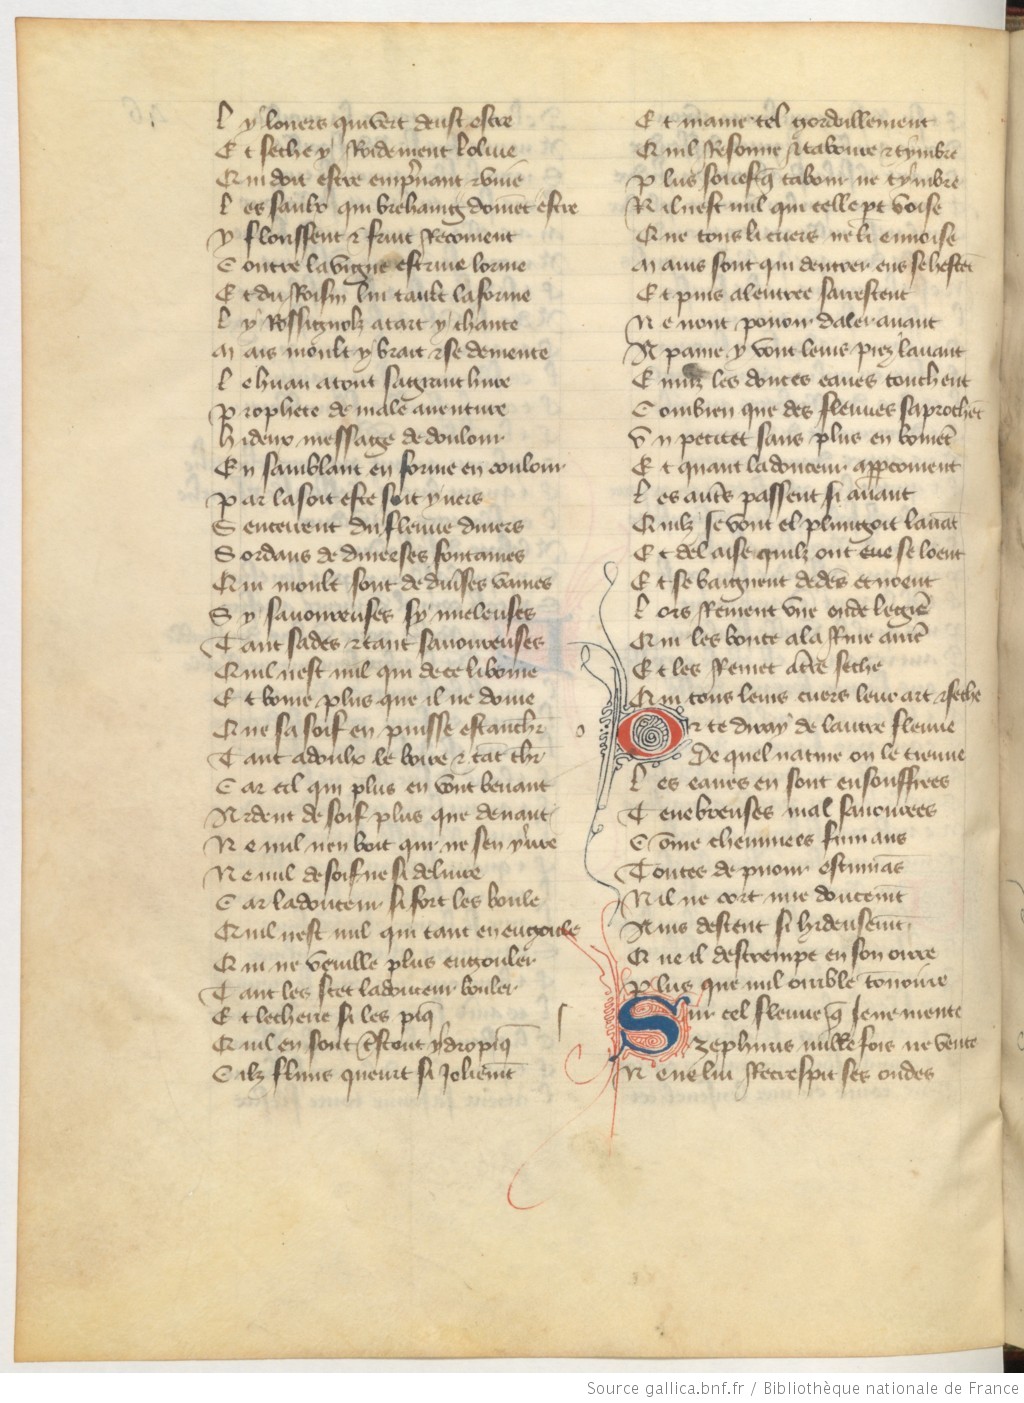 L y loriers qui vert deust estre
E t seche y roidement lolive
Q ui doit estre emp̃nant ⁊ vive
L es saulx qui brehaing doivent estre
y florissent ⁊ fruit recoivent
C ontre la vigne estrive lorme
E t du roisin lui tault la forme
L y rossignolz a tart y chante
M ais moult y brait ⁊ se demente
L e huan a tout sa grant hure
P rophete de male aventure
H ideux message de doulour
E n samblant en forme en coulour
P ar la soit este soit yvers
S encevent dui fleuve divers
S ordans de diverses fontaines
Q ui moult sont de div̾ses vaines
S y savoureuses sy mieleuses
T ant sades ⁊ tant savoureuses
Q uil nest nul qui de ce li boive
E t boive plus que il ne doive
Q ue sa soif en puisse estanch̾
T ant a doulx le boire ⁊ tāt ch̾
C ar cil qui plus en vont bevant
A rdent de soif plus que devant
N e nul nen boit qui ne sen yvre
N e nul de soif ne si delivre
C ar la douceur si fort les boule
Q uil nest nul qui tant en engoule
Q ui ne veuille plus engouler
T ant les scet la douceur bouler
E t lecherie si les piq̃
Q uil en sont t̾stout ydropiq̃
C ilz fluns queurt si joliem̄t
E t maine tel gordoillement
Q uil resonne ⁊ taboure ⁊ tymbre
P lus souef q̃ tabour ne tymbre
N il nest nul qui celle pt voise
Q ue tous li cuers ne li envoise
M ains sont qui dentrer ens se hestēt
E t puis a lentree sarrestent
N e nont pouoir daler avant
A paine y vont leurs piez lavant
E nviz les douces eaues touchent
C ombien que des fleuves saprochēt
U n petitet sans plus en boivēt
E t quant la douceur appcoivent
L es aut̾s passent si avant
Q uilz se vont el plungoit lavāt
E t del aise quilz ont eue se loent
E t se baignent dedēs et noent
L ors revient une onde legie̾
Q ui les boute a la rive arrie̾
E t les remet a t̾re seche
Q ui tous leurs cuers leur art ⁊ seche
O r te diray de lautre fleuve
De quel nature on le treuve
L es eaues en sont ensouffrees
T enebreuses mal savourees
C ōme cheminees fumans
T outes de puour escumās
N il ne cort mie doucem̄t
A ins descent si hideusem̄t
Q ue il destrempe en son oirre
P lus que nul orrible tōnoirre
S ur cel fleuve q̃ Je ne mente
zephirus nulle fois ne vente
N e ne lui recrespit ses ondes
Source gallica.bnf.fr / Bibliothèque nationale de France